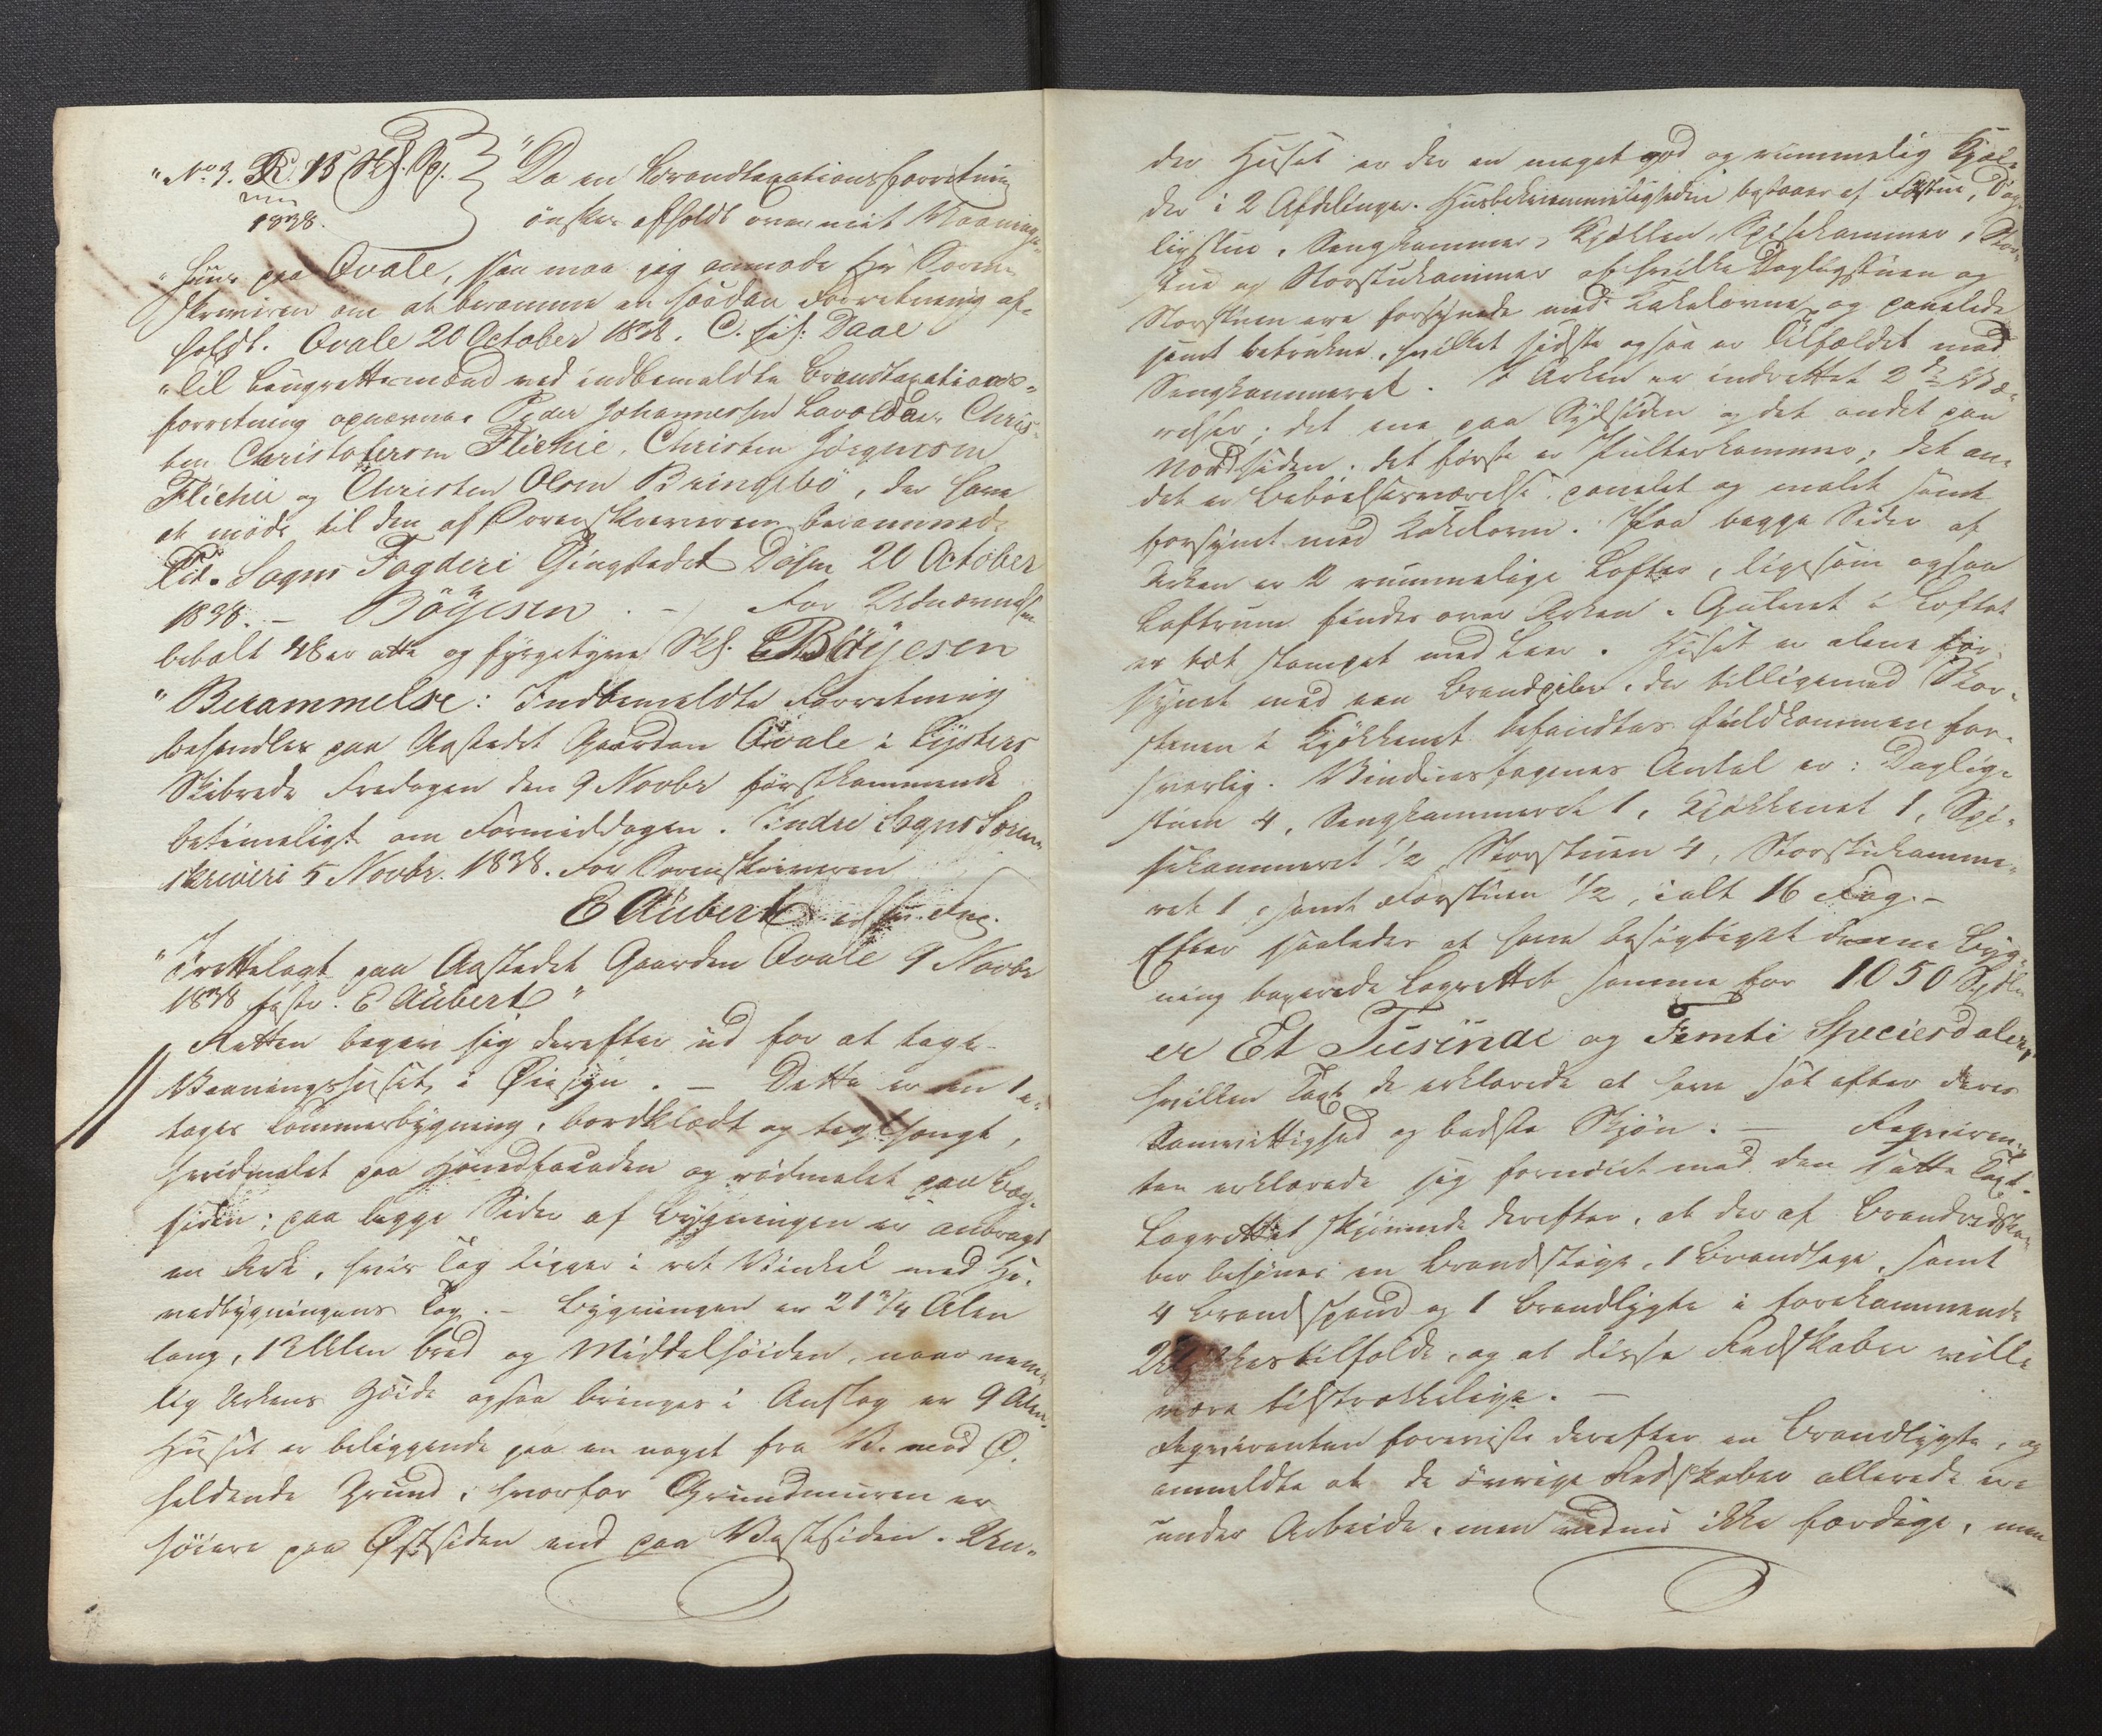 "No 3. 15 Skl. Sp. "Da en Brandtaxationsforretning
1838. ønskes afholdt over mit Vaanings-
"huus paa Qvale, saa maa jeg anmode Hr Soren-
skriveren om at beramme en saadan Forretning af-
holdt. Qvale 20 October 1838. C. Daae
"Til Laugrettemænd ved indbemeldte Brandtaxations-
forretning opnævnes Peder Johannessen Chris-
ten Christofersen Flichie, Christen Jörgensen
Flichie og Christen Olsen Bringebö, der have
at møde til den af Sorenskriveren berammede
Tid. Sogns Fogderi Dösen 20 October
1838. – Böÿesen. – For Udnævnelsen
betalt 48 er otte og fyrgetyve Skl. Böÿesen
"Berammelse: Indbemeldte Forretning
behandles paa Aastedet Gaarden Qvale i Lysters
Skibrede Fredagen den 9 Novbr førstkommende
betimeligt om Formiddagen. Indre Sogns Soren-
skriveri 5 Novbr. 1838. For Sorenskriveren
E Aubert
"Irettelagt paa Aastedet Gaarden Qvale 9 Novbr
1838 E Aubert"
Retten begav sig derefter ud for at tage
Vaaningshuset i Øiesyn. – Dette er en 1 e-
tages Tømmerbygning, bordklædt og teglhængt,
hvidmalet paa Hovedfacaden og rødmalet paa Bag-
siden; paa begge Sider af Bygningen er anbragt
en Ark, hvis Tag ligger i ret Vinkel med Ho-
vedbygningens Tag. – Bygningen er 21 3/4 Alen
lang, 12 Alen bred og Middelhøiden, naar nem-
lig Arkens Høide ogsaa bringes i Anslag er 9 Alen.
Huset er beliggende paa en noget fra V. mod Ø.
heldende Grund, hvorfor Grundmuren er
høiere paa Østsiden end paa Vestsiden. Un-
der Huset er der en meget god og rummelig Kjæl-
der i 2 Afdelinger. Husbekvemmeligheden bestaaer af Forstue, Dag-
ligstue, Sengkammer, Kjøkken, Spisekammer, Stor-
stue og Storstukammer af hvilke Dagligstuen og
Storstuen ere forsynede med Kakelovne og panelede
samt betrukne, hvilket sidste ogsaa er Tilfældet med
Sengkammeret. I Arken er indrettet 2de Væ-
relser; det ene paa Sydsiden og det andet paa
Nordsiden. Det første er Pulterkammer; det an-
det er Beboelsesværelse panelet og malet samt
forsynet med Kakelovn. Paa begge Sider af
Arken er 2 rummelige Lofter, ligesom ogsaa
Loftrum findes over Arken. Gulvet i Loftet
er tæt stampet med Leer. Huset er alene for-
synet med een Brandpibe, der tilligemed Skor-
stenen i Kjøkkenet befandtes fuldkommen for-
svarlig. Vinduesfagenes Antal er: Daglig-
stuen 4, Sengkammeret 1, Kjøkkenet 1, Spi-
sekammeret 1/2, Storstuen 4, Storstukamme-
ret 1, samt Forstuen 1/2, ialt 16 Fag. –
Efter saaledes at have besigtiget denne Byg-
ning taxerede Lagrettet samme for 1050 Spdlr
er Et Tusinde og Femti Speciesdaler,
hvilken Taxt de erklærede at have sat efter deres
Samvittighed og bedste Skjøn. – Reqviren-
ten erklærede sig fornøiet med den satte Taxt.
Lagrettet skjønnede derefter, at der af Brandredska-
ber behøves en Brandstige, 1 Brandhage, samt
4 Brandspand og 1 Brandlygte i forekommende
være tilstrækkelige. –
Reqvirenten foreviste derefter en Brandlygte, og
anmeldte at de øvrige Redskaber allerede ere
under Arbeide, men endnu ikke færdige, men